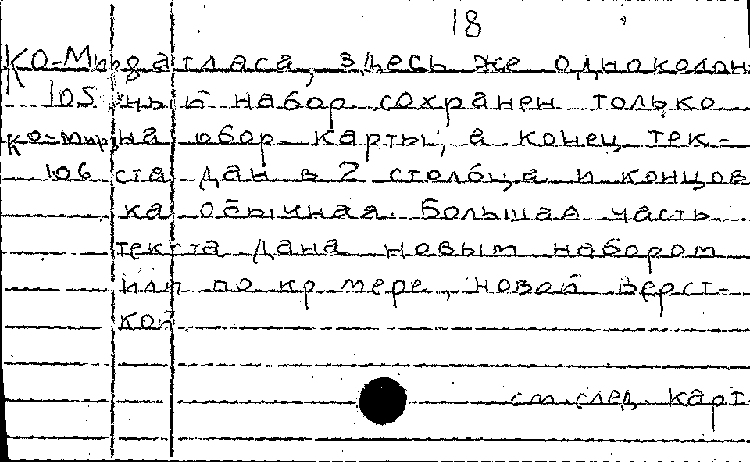 18
КО-Мир атласа, здесь же одноколон-
105 ный набор сохранен только
КО-мир на обор. карты, а конец тек-
106 ста дан в 2 столбца и концов
ка обычная. Большая часть
текста дана новым набором
или по кр. мере, новой верст-
кой
см. след. карт